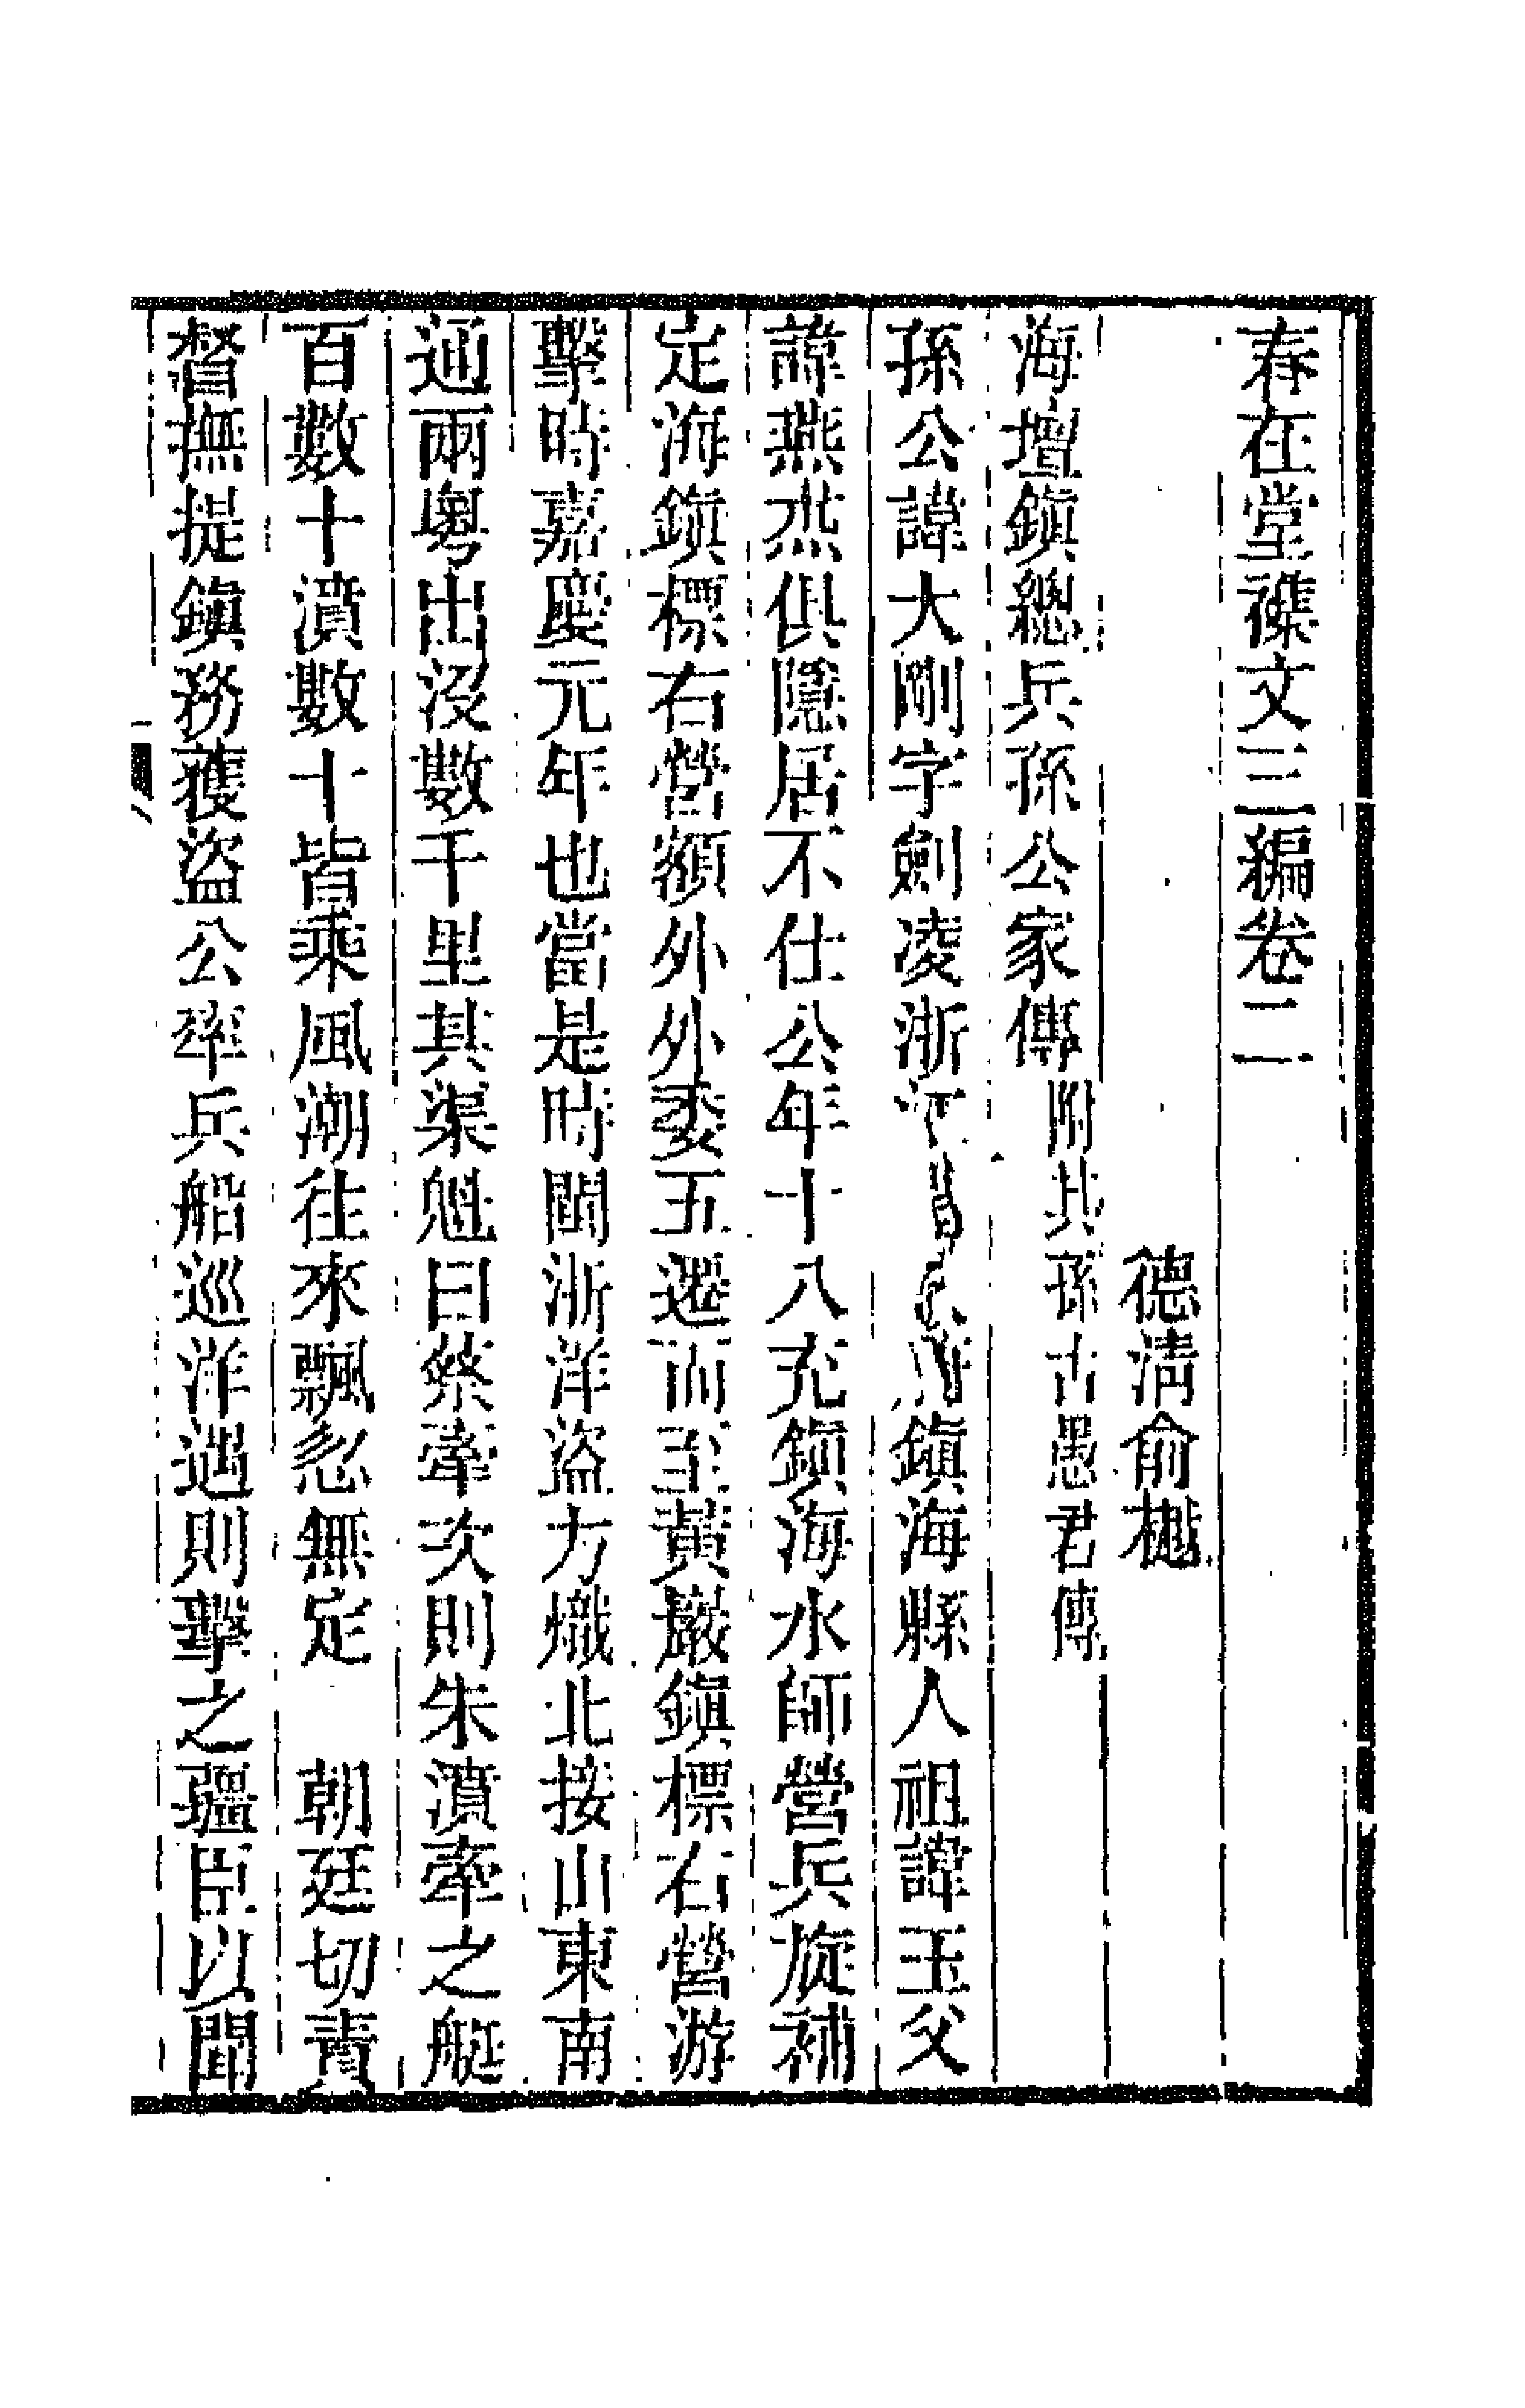 春在堂襍文三編卷二
德清俞樾
海壇鎮總兵孫公家傳附其孫古愚君傳
孫公諱大剛字劍凌浙江鎮海縣人祖諱玉父
諱燕燕俱隱居不仕公年十八充鎮海水師營兵旋補
定海鎮標右營額外外委五遷而至黃巖鎮標右營游
擊時嘉慶元年也當是時閩浙洋盜方熾北接山東南
通兩粵出沒數千里其渠魁曰蔡牽次則朱濆牽之艇
百數十濆數十皆乘風潮往來飄忽無定 朝廷切責
督撫提鎮務獲盜公率兵船巡洋遇則擊之疆臣以聞